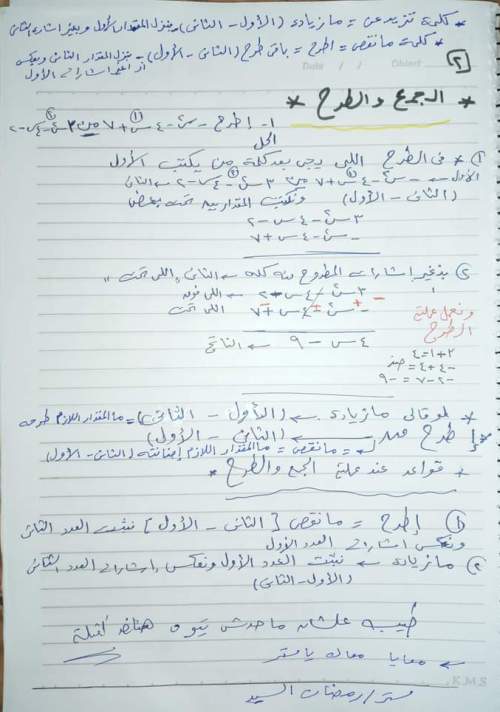 * كلمة تزيد عن = مازيادة (الأول - الثاني) - بنزل المقدار الأول وبغير اشارة الثاني
* كلمة مانقص = اطرح = باقى طرح (الثانى - الأول) - بنزل المقدار الثانى وبعكس
أو أغير اشارات الأول
Date / / Object
(٢)
* الجمع والطرح *
١- إطرح - س٢ - ٤س + ٧ من ٣س٢ - ٤س - ٢
الحل
① * فى الطرح اللى يجى بعد كلمة من يكتب الأول
الأول ← - س٢ - ٤س + ٧ من ٣س٢ - ٤س - ٢ ← الثانى
(الثانى - الأول) ونكتب المقداريين تحت بعض
٣س٢ - ٤س - ٢
- س٢ - ٤س + ٧
② بنغير إشارات المطروح منه كله ← الثانى "اللى تحت"
٣س٢ - ٤س - ٢ ← اللى فوق
- س٢ - ٤س + ٧ اللى تحت
ونعمل عملية
الطرح
٤س - ٩ ← الناتج
٣ + ١ = ٤
- ٤ + ٤ = صفر
- ٢ - ٧ = - ٩
* لو قالى مازيادة ← (الأول - الثانى) = ما المقدار اللازم طرحه
* إطرح من ← (الثانى - الأول)
= مانقص = ما المقدار اللازم إضافته (الثانى - الأول)
* قواعد عند عملية الجمع والطرح *
① إطرح = مانقص [الثانى - الأول] نثبت العدد الثانى
ونعكس اشارات العدد الأول
② مازيادة ← نثبت العدد الأول ونعكس إشارات العدد الثانى
(الأول - الثانى)
طيب علشان ماحدش يتوه هناخد أمثلة
← معايا معاك يا مستر
مستر / رمضان السيد
K.M.S